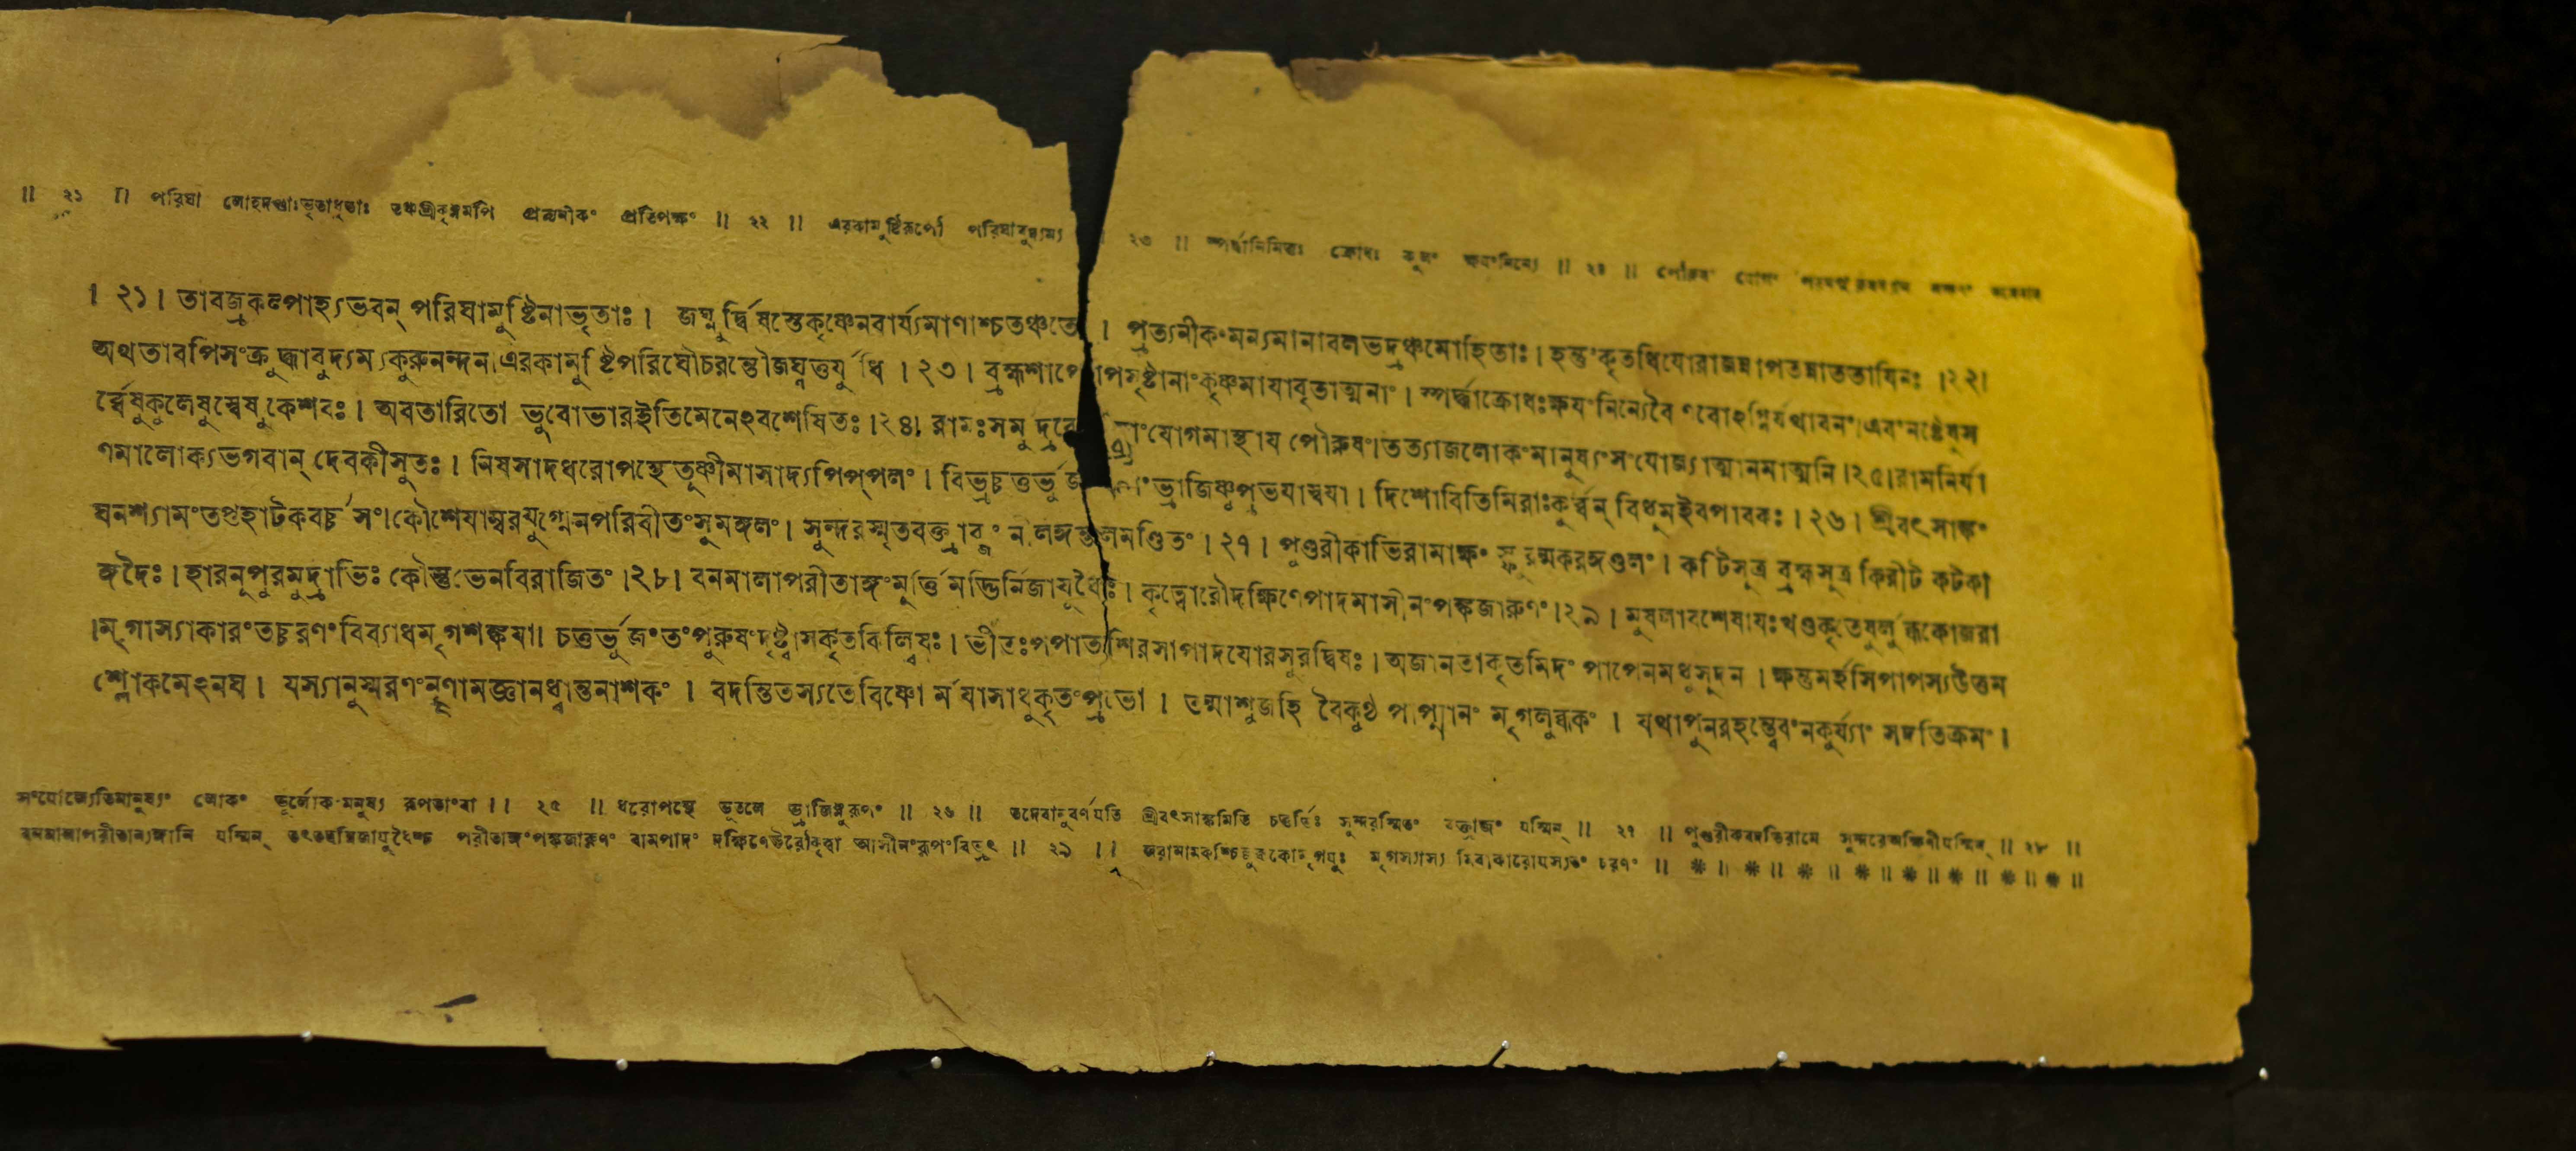 ॥ ২১ ॥ পরিঘা লোহদণ্ডাঃভৃতাধৃতাঃ প্রত্যনীকং প্রতিপক্ষং ॥ ২২ ॥ এরকামুষ্টিরূপৌ ২৩ ॥ স্পর্দ্ধানিমিত্তঃ ক্রোধঃ ॥ ২৪ ॥
। ২১। তাবজ্রকল্পাহ্যভবন্ পরিঘামুষ্টিনাভৃতাঃ। জঘ্নুর্দ্বিষস্তেকৃষ্ণেনবার্য্যমাণাশ্চতঞ্চতে । প্রত্যনীকংমন্যমানাবলভদ্রঞ্চমোহিতাঃ। হন্তুংকৃতধিযোরাজন্নাপতন্নাততাযিনঃ ।২২।
অথতাবপিসংক্রুদ্ধাবুদ্যম্যকুরুনন্দন।এরকামুষ্টিপরিঘৌচরন্তৌজঘ্নতুর্যুধি । ২৩। ব্রহ্মশাপোপসৃষ্টানাংকৃষ্ণমাযাবৃতাত্মনাং। স্পর্দ্ধাক্রোধঃক্ষযংনিন্যেবৈণবোঽগ্নির্যথাবনং।এবংনষ্টেষুস
র্ব্বেষুকুলেষুস্বেষুকেশবঃ। অবতারিতো ভুবোভারইতিমেনেঽবশেষিতঃ ।২৪। রামঃসমুদ্রবে াংযোগমাস্থায পৌরুষং।তত্যাজলোকংমানুষ্যংসংযোজ্যাত্মানমাত্মনি।২৫।রামনির্যা
ণমালোক্যভগবান্ দেবকীসুতঃ। নিষসাদধরোপস্থেতূষ্ণীমাসাদ্যপিপ্পলং। বিভ্রচতুর্ভুজ ংভ্রাজিষ্ণুপ্রভযাস্বযা। দিশোবিতিমিরাঃকুর্ব্বন্ বিধূমইবপাবকঃ। ২৬। শ্রীবৎসাঙ্কং
ঘনশ্যামংতপ্তহাটকবর্চ্চসং।কৌশেযাম্বরযুগ্মেনপরিবীতংসুমঙ্গলং। সুন্দরস্মৃতবক্ত্রাব্জং নীলঙ্গন্তলমণ্ডিতং। ২৭। পুণ্ডরীকাভিরামাক্ষং স্ফুরন্মকরঙ্গণ্ডলং। কটিসূত্র ব্রহ্মসূত্র কিরীট কটকা
ঙ্গদৈঃ। হারনূপুরমুদ্রাভিঃ কৌস্তুভেনবিরাজিতং ।২৮। বনমালাপরীতাঙ্গংমূর্ত্তিমদ্ভির্নিজাযুধৈঃ। কৃত্বোরৌদক্ষিণেপাদমাসীনংপঙ্কজারুণং।২৯। মুষলাবশেষাযঃখণ্ডকৃতেষুর্লুব্ধকোজরা
।মৃগাস্যাকারংতচ্চরণংবিব্যাধমৃগশঙ্কযা॥ চতুর্ভুজংতংপুরুষংদৃষ্ট্বাসকৃতকিল্বিষঃ। ভীতঃপপাতশিরসাপাদযোরসুরদ্বিষঃ। অজানতাকৃতমিদং পাপেনমধুসূদন। ক্ষন্তুমর্হসিপাপস্যউত্তম
শ্লোকমেঽনঘ। যস্যানুস্মরণংনৃণামজ্ঞানধ্বান্তনাশকং। বদন্তিতস্যতেবিষ্ণো র্মযাসাধুকৃতংপ্রভো। তন্মাশুজহি বৈকুণ্ঠ পাপ্মানং মৃগলুব্ধকং। যথাপুনরহন্ত্বেবংনকুর্য্যাং সদতিক্রমং।
লোকং ভূর্লোকংমনুষ্য রূপতাংবা॥ ২৫ ॥ ধরোপস্থে ভূতলে ভ্রাজিষ্ণুরূপং ॥ ২৬ ॥ তদেবানুবর্ণযতি শ্রীবৎসাঙ্কমিতি চতুর্ভিঃ সুন্দরস্মিতং বক্ত্রাব্জং যস্মিন্ ॥ ২৭ ॥ পুণ্ডরীকবদভিরামে সুন্দরেঅক্ষিণীযস্মিন্ ॥ ২৮ ॥
বনমালাপরীতান্যঙ্গানি যস্মিন্ পরীতাঙ্গংপঙ্কজারুণং বামপাদং দক্ষিণেঊরৌকৃত্বা আসীনংরূপংবিভ্রৎ ॥ ২৯ ॥ মৃগস্যাস্য চরণং ॥ * ॥ * ॥ * ॥ * ॥ * ॥ * ॥ * ॥ * ॥